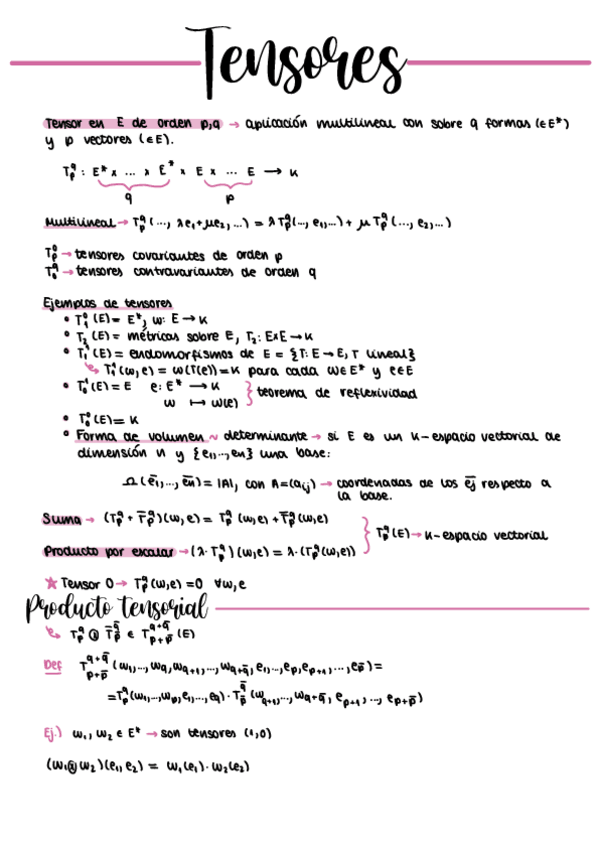 Tensores
Tensor en E de orden p,q → aplicación multilineal con sobre q formas (∈E*)
y p vectores (∈E).
T_p^q : E* x ... x E* x E x ... E → K
q p
Multilineal → T_p^q (..., λe₁+μe₂, ...) = λ T_p^q (..., e₁, ...) + μ T_p^q (..., e₂, ...)
T_p^0 → tensores covariantes de orden p
T_0^q → tensores contravariantes de orden q
Ejemplos de tensores
• T_1^0 (E) = E*, w: E → K
• T_2 (E) = métricas sobre E, T₂: ExE → K
• T_1^1 (E) = endomorfismos de E = {T: E → E, T lineal}
↳ T_1^1 (w, e) = w(T(e)) = K para cada w∈E* y e∈E
• T_0^1 (E) = E e: E* → K } teorema de reflexividad
w ↦ w(e)
• T_0^0 (E) = K
• Forma de volumen ~ determinante → si E es un K-espacio vectorial de
dimensión n y {e₁,...,en} una base:
Ω(ē₁,...,ēn) = |A|, con A=(aij) → coordenadas de los ēj respecto a
la base.
Suma → (T_p^q + T̄_p^q)(w,e) = T_p^q (w,e) + T̄_p^q (w,e)
Producto por escalar → (λ·T_p^q)(w,e) = λ·(T_p^q(w,e))
} T_p^q (E) → K-espacio vectorial
★ Tensor 0 → T_p^q (w,e) = 0 ∀w,e
Producto tensorial
↳ T_p^q ⊗ T̄_p̄^q̄ ∈ T_{p+p̄}^{q+q̄} (E)
Def T_{p+p̄}^{q+q̄} (w₁,...,wq,wq+1,...,wq+q̄,e₁,...,ep,ep+1,...,ep̄) =
= T_p^q (w₁,...,wp,e₁,...,eq) · T_p̄^q̄ (wq+1,...,wq+q̄, ep+1,...,ep+p̄)
Ej.) w₁, w₂ ∈ E* → son tensores (1,0)
(w₁⊗w₂)(e₁,e₂) = w₁(e₁)·w₂(e₂)